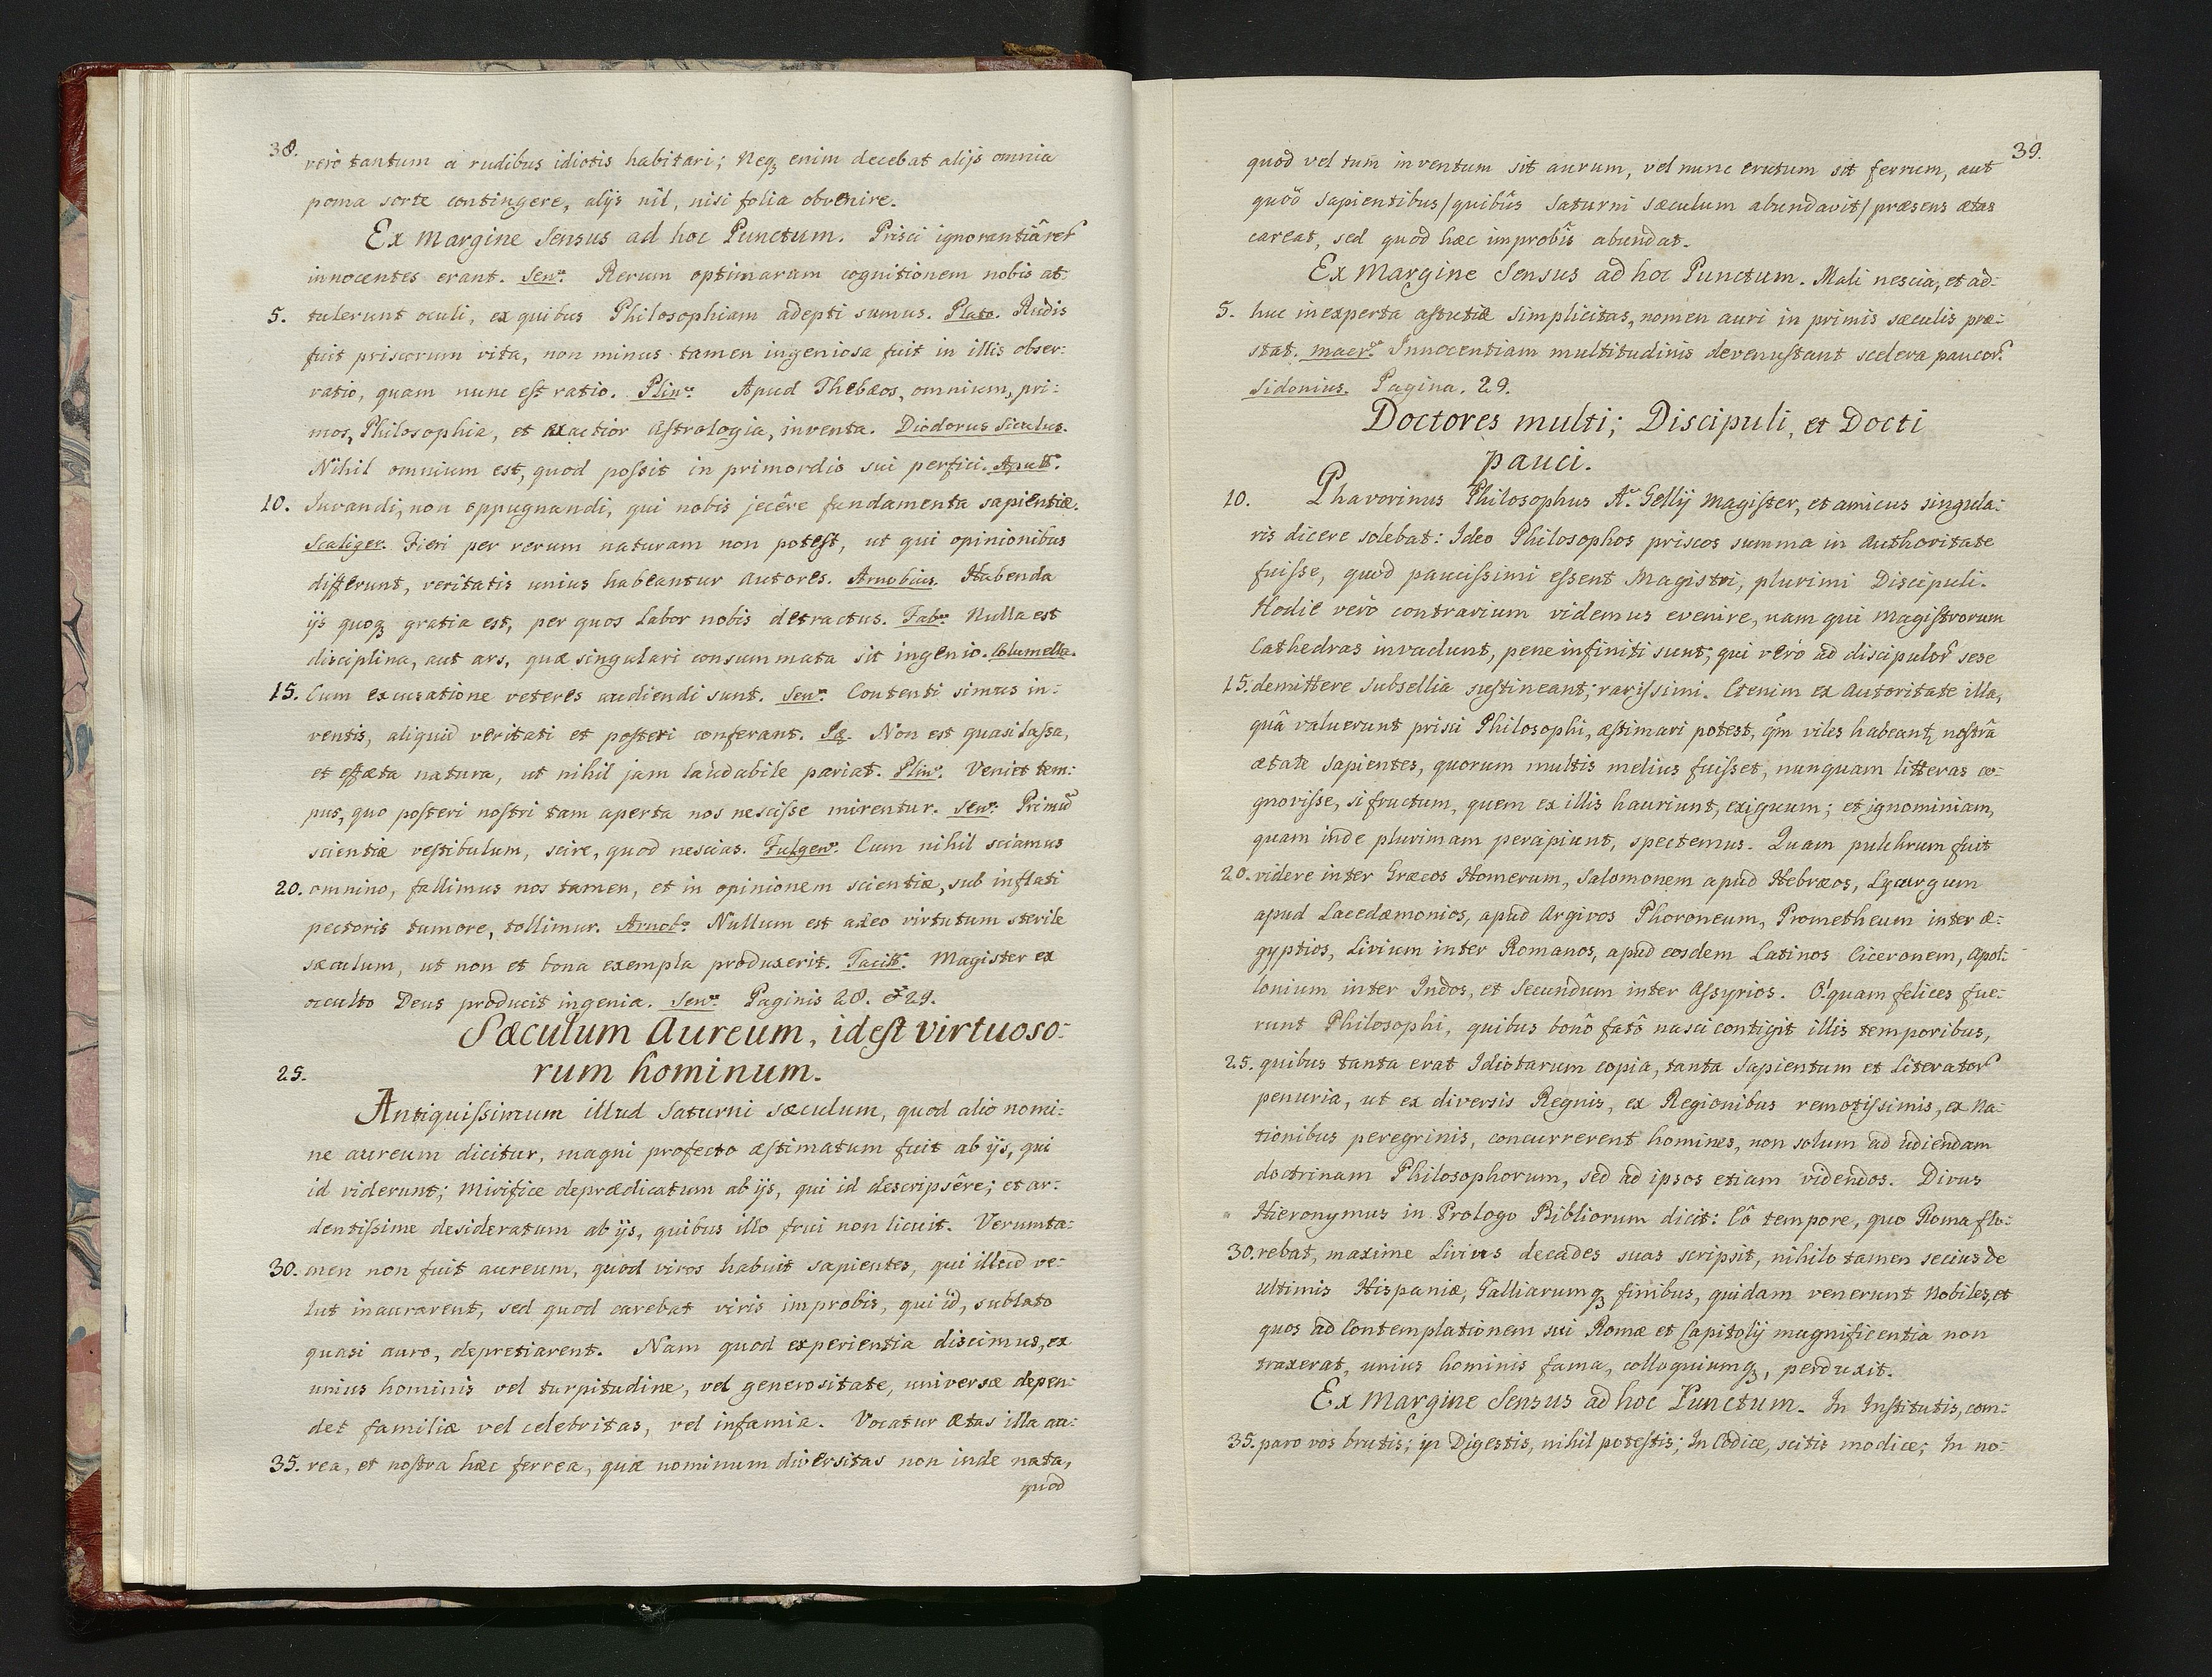 38.
verò tantum a rudibus idiotis habitari; Neqꝫ enim decebat alijs omnia
poma sorte contingere, alijs nil, nisi folia obvenire.
Ex Margine Sensus ad hoc Punctum. Prisci ignorantiâ rer̃
innocentes erant. Senᵃ. Rerum optimarum cognitionem nobis at:
5. tulerunt oculi, ex quibus Philosophiam adepti sumus. Plato. Rudis
fuit priscorum vita, non minus tamen ingeniosa fuit in illis obser:
vatio, quam nunc est ratio. Plinᵘˢ. Apud Thebæos, omnium, pri:
mos, Philosophia, et exactior Astrologia, inventa. Diodorus Siculus.
Nihil omnium est, quod possit in primordio sui perfici. Apull.
10. Juvandi, non oppugnandi, qui nobis jecêre fundamenta sapientiæ.
Scaliger. Fieri per rerum naturam non potest, ut qui opinionibus
differunt, veritatis unius habeantur autores. Arnobius. Habenda
ijs quoqꝫ gratia est, per quos Labor nobis detractus. Fabᵘˢ. Nulla est
disciplina, aut ars, quæ singulari consummata sit ingenio. Columella.
15. Cum excusatione veteres audiendi sunt. Senᵃ. Contenti simus in:
ventis, aliquid veritati et posteri conferant. Id. Non est quasi lassa,
et effæta natura, ut nihil jam laudabile pariat. Plinᵘˢ. Veniet tem:
pus, quo posteri nostri tam aperta nos nescisse mirentur. Senᵃ. Primũ
scientiæ vestibulum, scire, quod nescias. Fulgenˢ. Cum nihil sciamus
20. omnino, fallimus nos tamen, et in opinionem scientiæ, sub inflati
pectoris tumore, tollimur. Arnobˢ. Nullum est adeo virtutum sterile
sæculum, ut non et bona exempla produxerit. Tacitˢ. Magister ex
occulto Deus producit ingenia. Senᵃ. Paginis 28. et 29.
Sæculum Aureum, id est virtuoso:
25. rum hominum.
Antiquissimum illud Saturni sæculum, quod alio nomi:
ne aureum dicitur, magni profecto æstimatum fuit ab ijs, qui
id viderunt; Mirifice deprædicatum ab ijs, qui id descripsêre; et ar:
dentissime desideratum ab ijs, quibus illo frui non licuit. Verumta:
30. men non fuit aureum, quod viros habuit sapientes, qui illud ve:
lut inaurarent, sed quod carebat viris improbis, qui id, sublato
quasi auro, depretiarent. Nam quod experientia discimus, ex
unius hominis vel turpitudine, vel generositate, universæ depen:
det familiæ vel celebritas, vel infamia. Vocatur Ætas illa au:
35. rea, et nostra hæc ferrea, quæ nominum diversitas non inde nata,
quod
39.
quod vel tum inventum sit aurum, vel nunc erutum sit ferrum, aut
quod Sapientibus /quibus Saturni sæculum abundavit/ præsens ætas
careat, sed quod hæc improbis abundat.
Ex Margine Sensus ad hoc Punctum. Mali nescia, et ad:
5. huc inexperta astutiæ Simplicitas, nomen auri in primis sæculis præ:
stat. Macrˢ. Innocentiam multitudinis devenustant scelera paucor̃.
Sidonius. Pagina. 29.
Doctores multi; Discipuli, et Docti
pauci.
10. Phavorinus Philosophus A. Gellij Magister, et amicus singula:
ris dicere solebat: Ideo Philosophos priscos summa in Authoritate
fuisse, quod paucissimi essent Magistri, plurimi Discipuli.
Hodie verò contrarium videmus evenire, nam qui Magistrorum
Cathedras invadunt, pene infiniti sunt; qui verò ad discipulor̃ sese
15. demittere Subsellia sustineant; rarissimi. Etenim ex Autoritate illa,
quâ valuerunt prisci Philosophi, æstimari potest, qm̃ viles habeant̃, nostrâ
ætate Sapientes, quorum multis melius fuisset, nunquam litteras co:
gnovisse, si fructum, quem ex illis hauriunt, exiguum; et ignominiam,
quam inde plurimam percipiunt, spectemus. Quam pulchrum fuit
20. videre inter Græcos Homerum, Salomonem apud Hebræos, Lycurgum
apud Lacedæmonios, apud Argivos Phoroneum, Prometheum inter Æ:
gyptios, Livium inter Romanos, apud eosdem Latinos Ciceronem, Apol:
lonium inter Indos, et Secundum inter Assyrios. O! quam felices fue:
runt Philosophi, quibus bonô fatô nasci contigit illis temporibus,
25. quibus tanta erat Idiotarum copia, tanta Sapientum et Literator̃
penuria, ut ex diversis Regnis, ex Regionibus remotissimis, ex Na:
tionibus peregrinis, concurrerent homines, non solum ad udiendam
doctrinam Philosophorum, sed ad ipsos etiam videndos. Divus
Hieronymus in Prologo Bibliorum dicit: Eô tempore, quo Roma flo:
30. rebat, maxime Livius decades suas scripsit, nihilo tamen secius de
ultimis Hispaniæ, Galliarumqꝫ finibus, quidam venerunt Nobiles, et
quos ad Contemplationem sui Romæ et Capitolij magnificentia non
traxerat, unius hominis fama, colloquiumqꝫ, perduxit.
Ex Margine Sensus ad hoc Punctum. In Institutis, com:
35. paro vos brutis; in Digestis, nihil potestis; In Codice, scitis modice; In no: